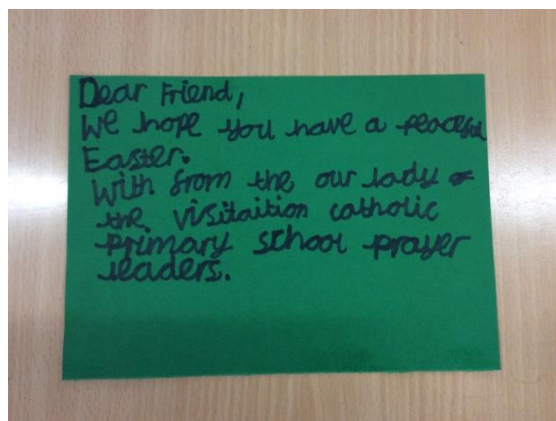 Dear Friend,
We hope you have a peaceful
Easter.
With from the our lady of
the visitaition catholic
primary school prayer
leaders.